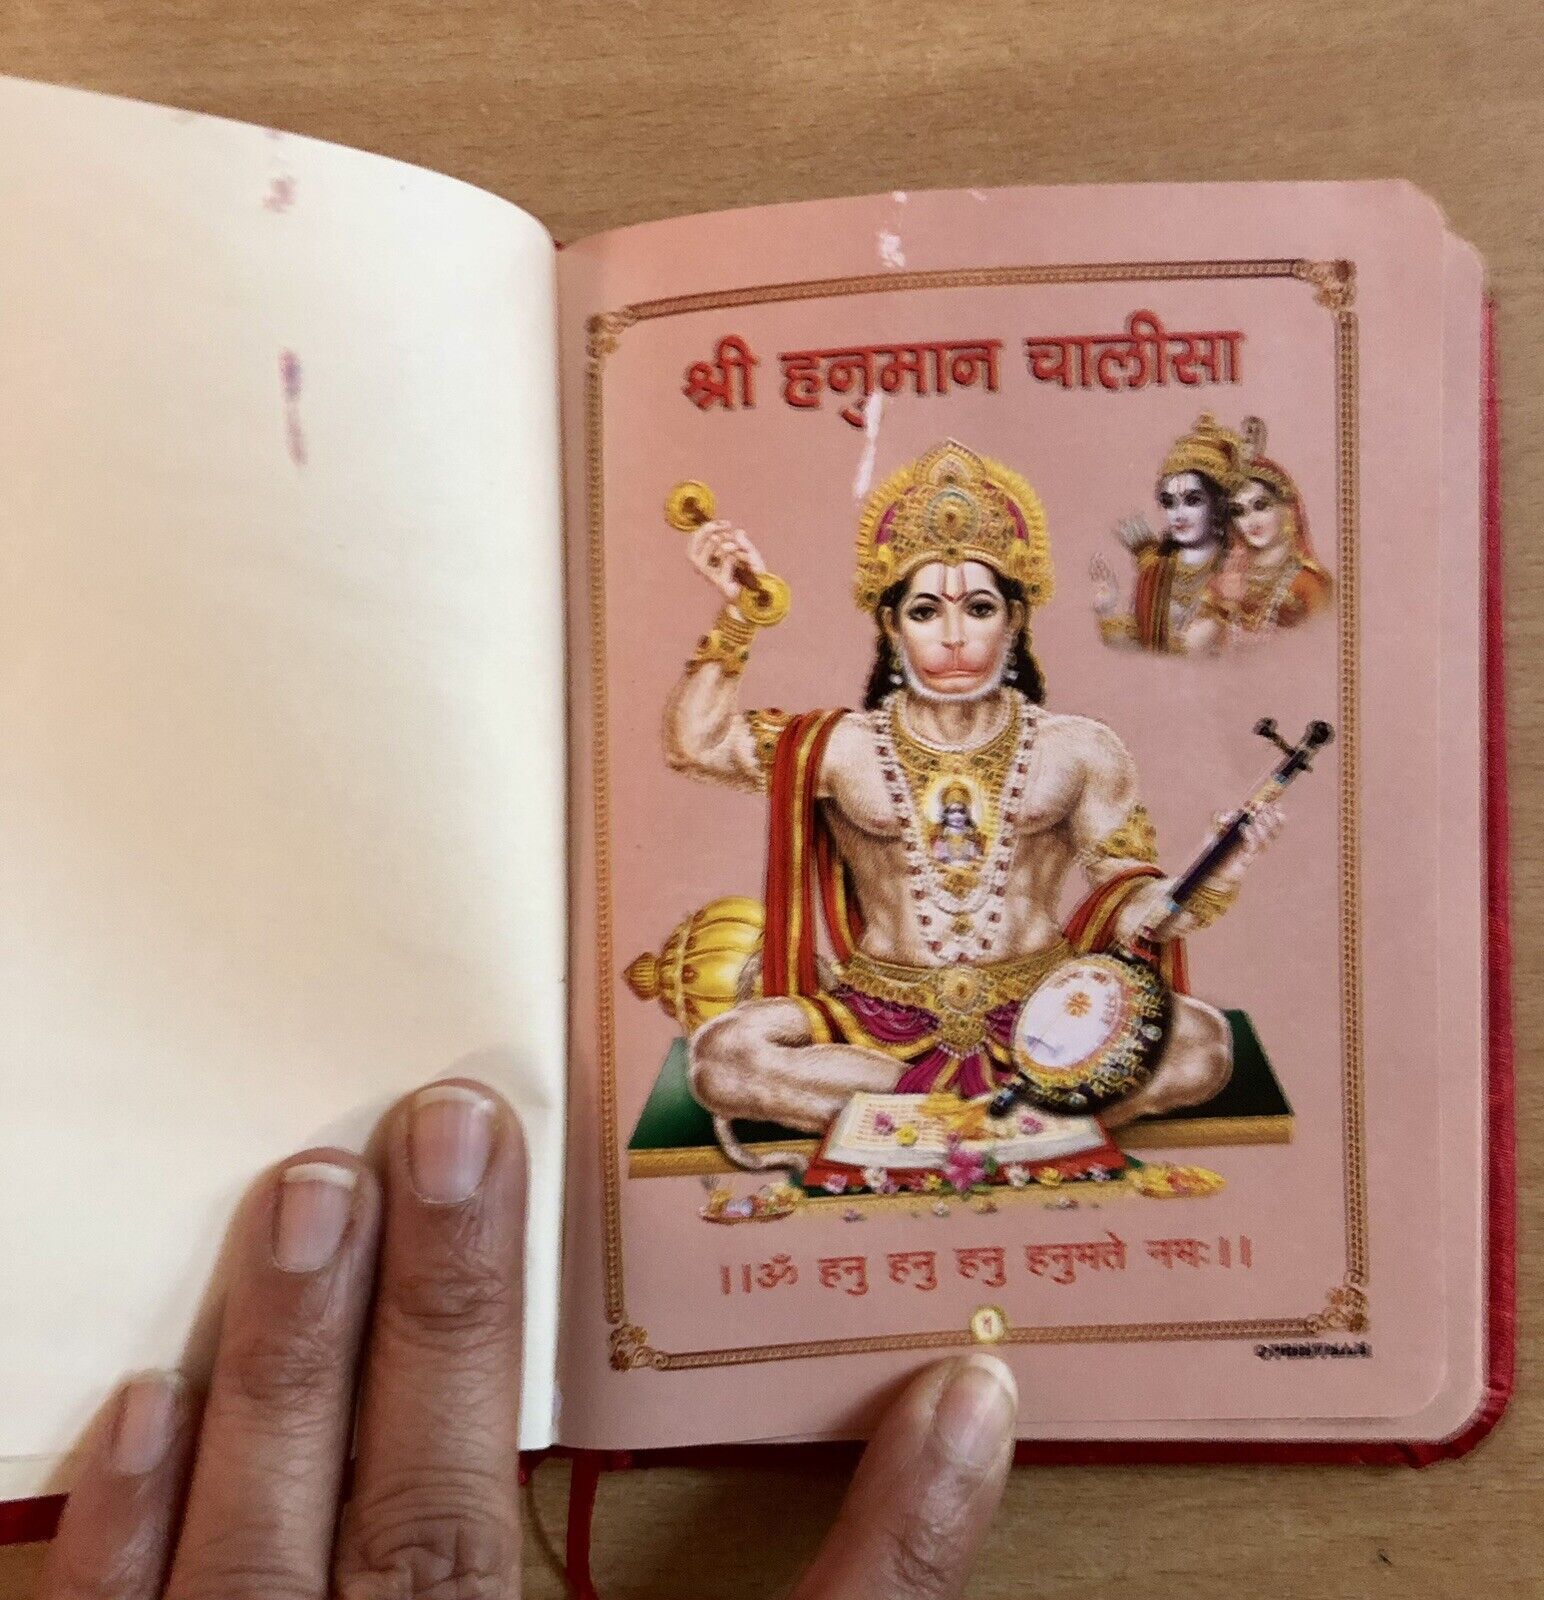 श्री हनुमान चालीसा
।।ॐ हनु हनु हनु हनुमते नमः।।